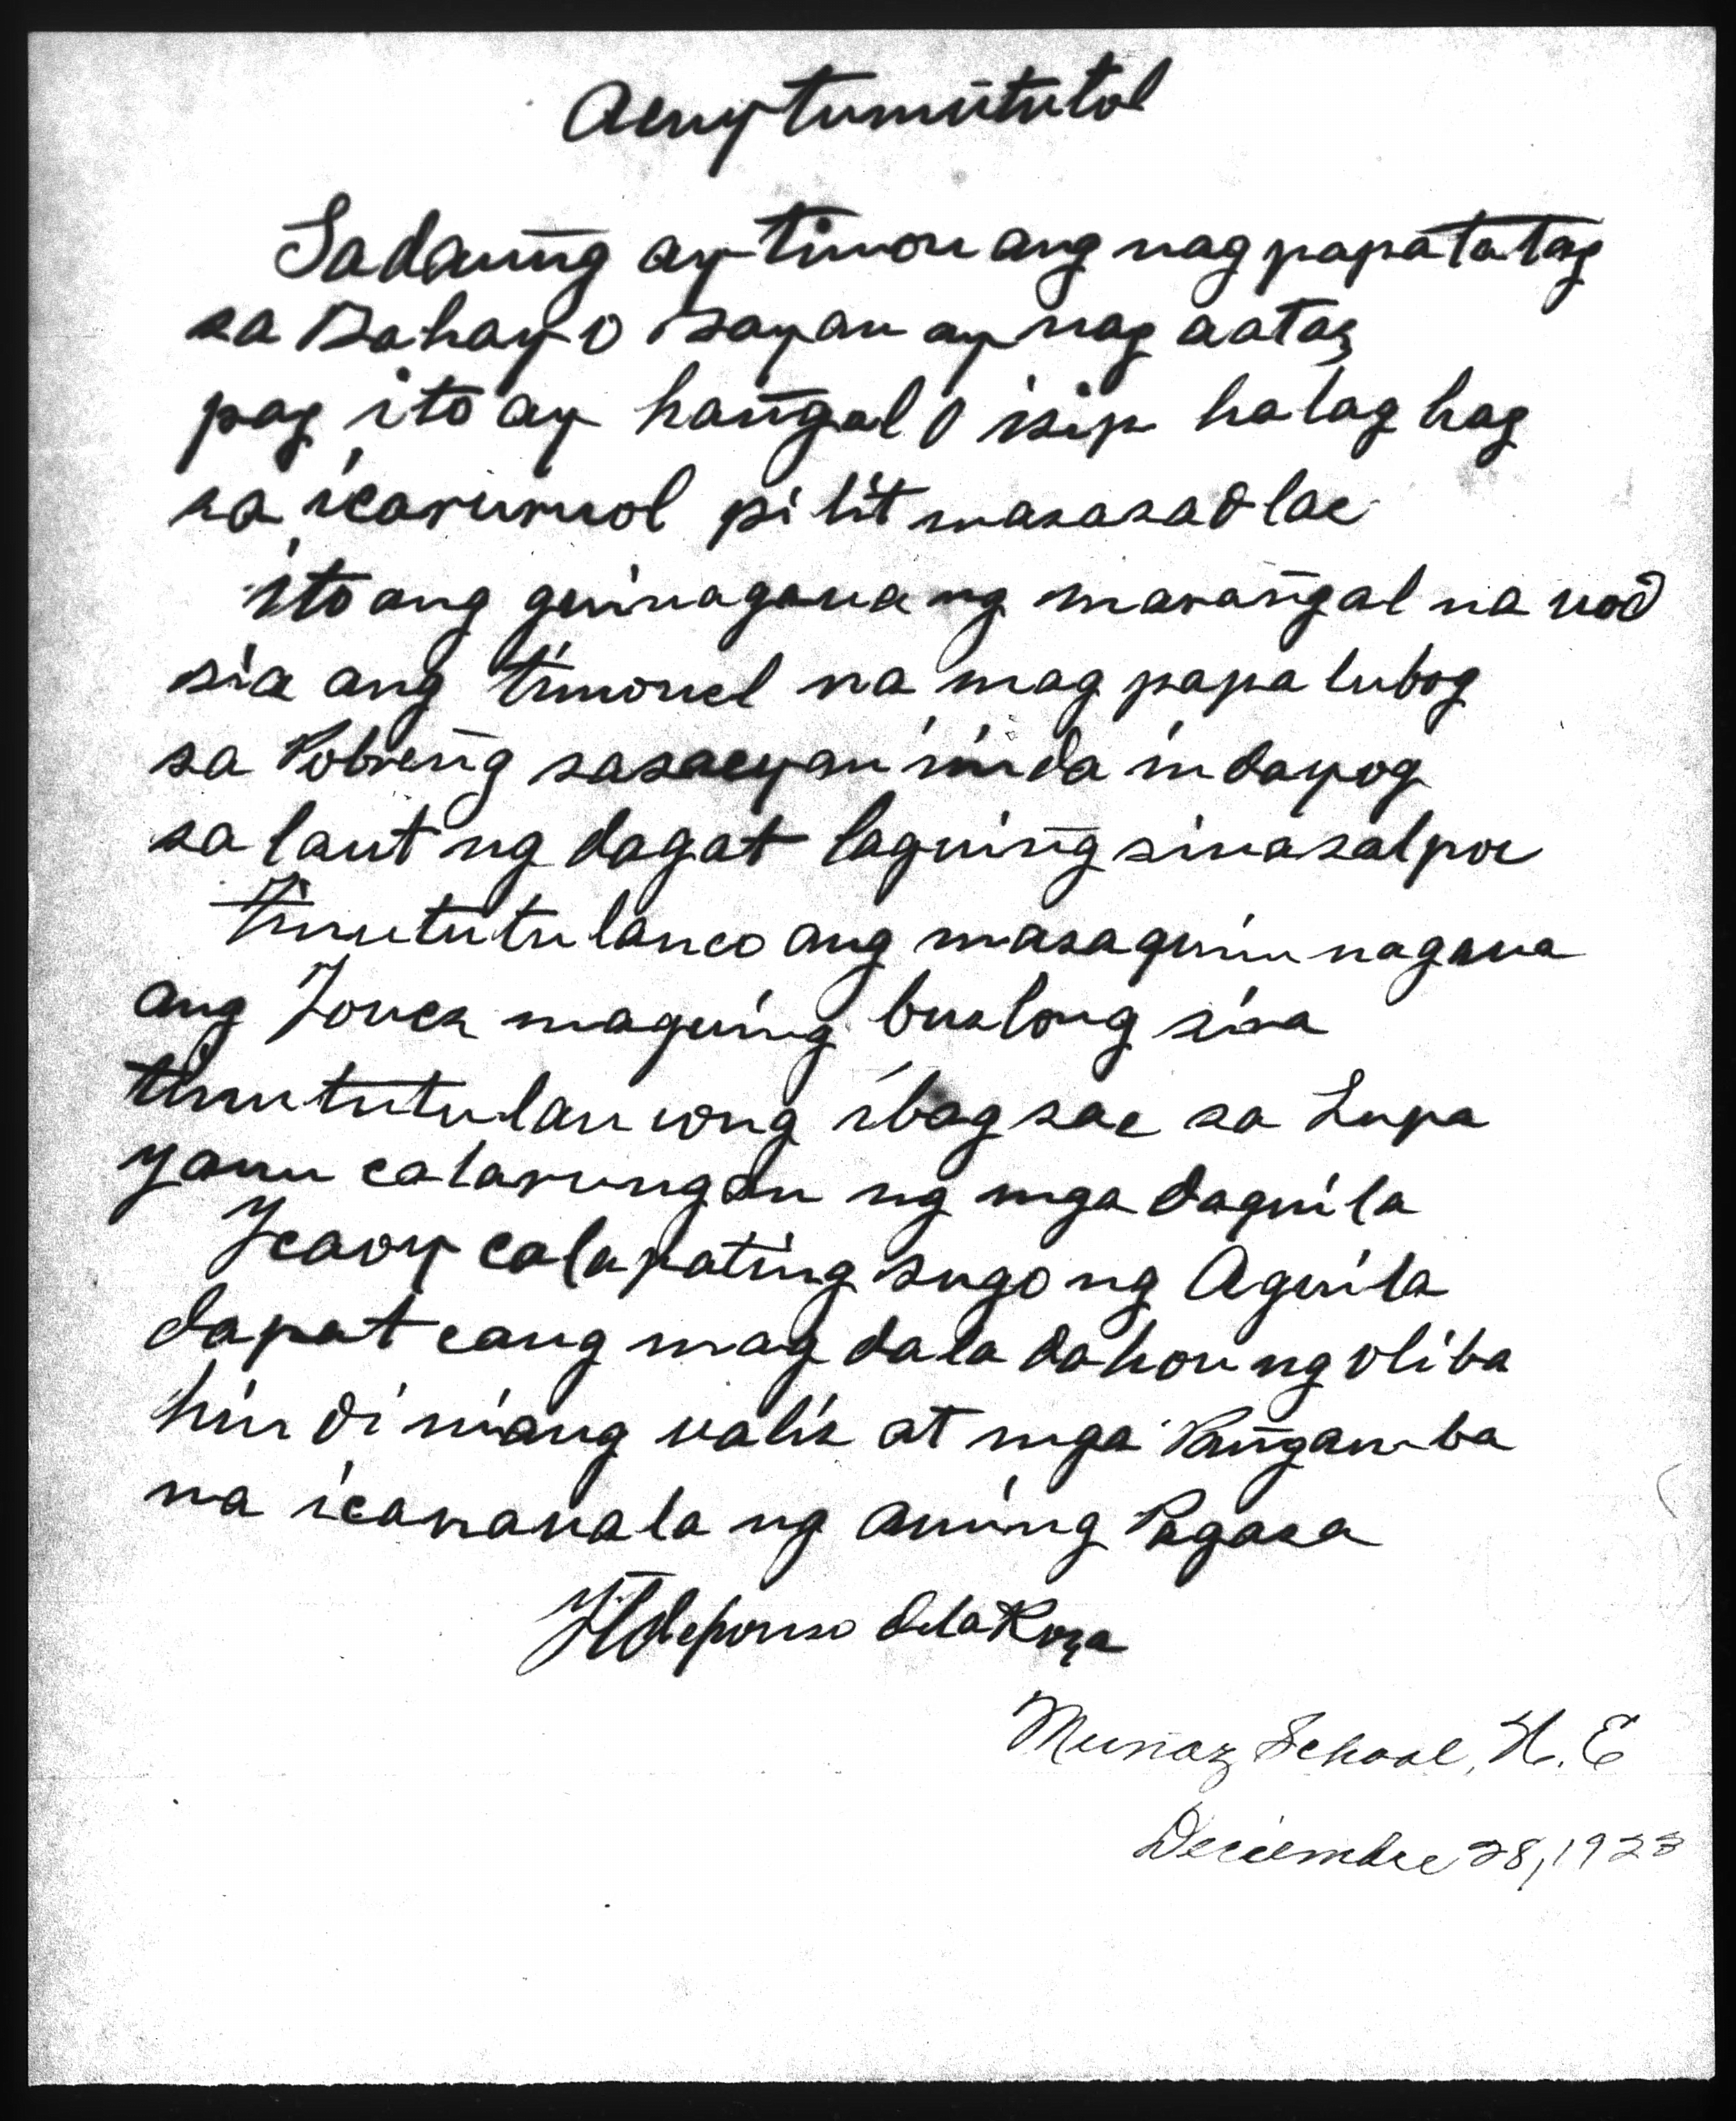 Acuy tumututol
Sadaung ay timon ang nag papatatag
sa Bahay o bayan ay nag aatas
pag ito ay hañgal o isip halaghag
sa icaruruol pilit masasadlac
ito ang guinagaua ng marañgal na uod
sia ang timonel na mag papalubog
sa Pobreñg sasacyan inida indayog
sa laut ng dagat laguiñg sinasalpoc
tinututulanco ang masaguiunagaua
ang Jones maguing bualong sira
tinututulan cong ibagsac sa Lupa
yaun catarungan ng mga daquila
Icaoy calapating sugo ng Aguila
dapat cang mag dala dahon ng oliba
hindi niang ualis at mga Pañgamba
na icauauala ng aming Pagasa
Yldeponso dela Roza
Munoz School, N. E
Deciembre 28, 1923